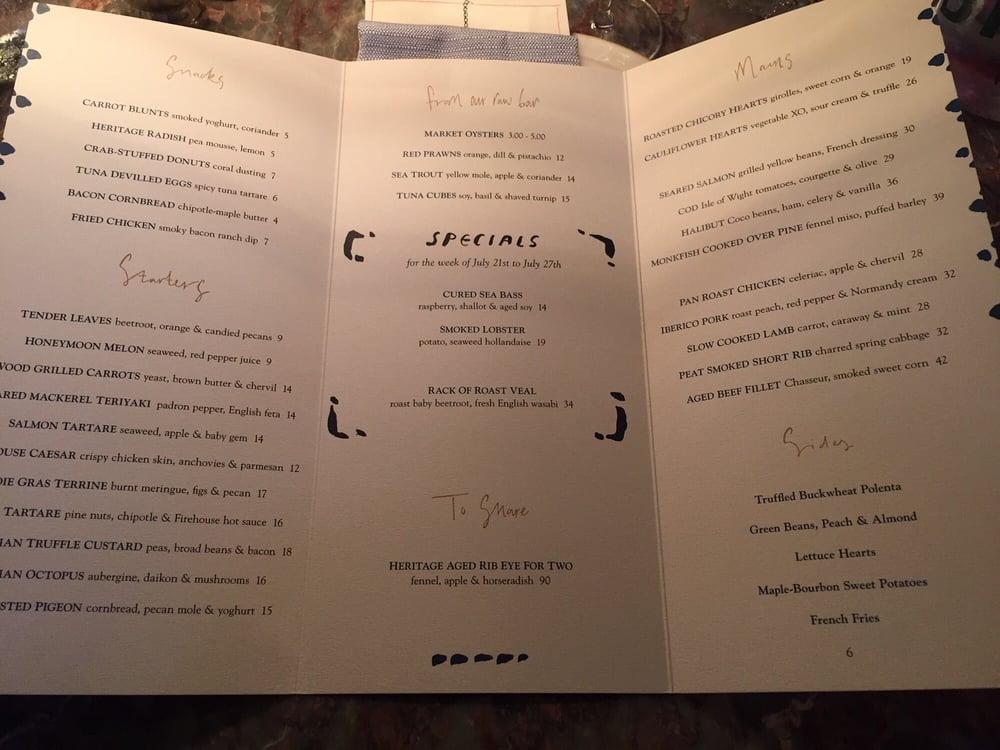 Snacks
CARROT BLUNTS smoked yoghurt, coriander 5
HERITAGE RADISH pea mousse, lemon 5
CRAB-STUFFED DONUTS coral dusting 7
TUNA DEVILLED EGGS spicy tuna tartare 6
BACON CORNBREAD chipotle-maple butter 4
FRIED CHICKEN smoky bacon ranch dip 7
Starters
TENDER LEAVES beetroot, orange & candied pecans 9
HONEYMOON MELON seaweed, red pepper juice 9
WOOD GRILLED CARROTS yeast, brown butter & chervil 14
ARED MACKEREL TERIYAKI padron pepper, English feta 14
SALMON TARTARE seaweed, apple & baby gem 14
OUSE CAESAR crispy chicken skin, anchovies & parmesan 12
OIE GRAS TERRINE burnt meringue, figs & pecan 17
TARTARE pine nuts, chipotle & Firehouse hot sauce 16
IAN TRUFFLE CUSTARD peas, broad beans & bacon 18
IAN OCTOPUS aubergine, daikon & mushrooms 16
STED PIGEON cornbread, pecan mole & yoghurt 15
from our raw bar
MARKET OYSTERS 3.00 - 5.00
RED PRAWNS orange, dill & pistachio 12
SEA TROUT yellow mole, apple & coriander 14
TUNA CUBES soy, basil & shaved turnip 15
SPECIALS
for the week of July 21st to July 27th
CURED SEA BASS
raspberry, shallot & aged soy 14
SMOKED LOBSTER
potato, seaweed hollandaise 19
RACK OF ROAST VEAL
roast baby beetroot, fresh English wasabi 34
To Share
HERITAGE AGED RIB EYE FOR TWO
fennel, apple & horseradish 90
Mains
ROASTED CHICORY HEARTS girolles, sweet corn & orange 19
CAULIFLOWER HEARTS vegetable XO, sour cream & truffle 26
SEARED SALMON grilled yellow beans, French dressing 30
COD Isle of Wight tomatoes, courgette & olive 29
HALIBUT Coco beans, ham, celery & vanilla 36
MONKFISH COOKED OVER PINE fennel miso, puffed barley 39
PAN ROAST CHICKEN celeriac, apple & chervil 28
IBERICO PORK roast peach, red pepper & Normandy cream 32
SLOW COOKED LAMB carrot, caraway & mint 28
PEAT SMOKED SHORT RIB charred spring cabbage 32
AGED BEEF FILLET Chasseur, smoked sweet corn 42
Sides
Truffled Buckwheat Polenta
Green Beans, Peach & Almond
Lettuce Hearts
Maple-Bourbon Sweet Potatoes
French Fries
6